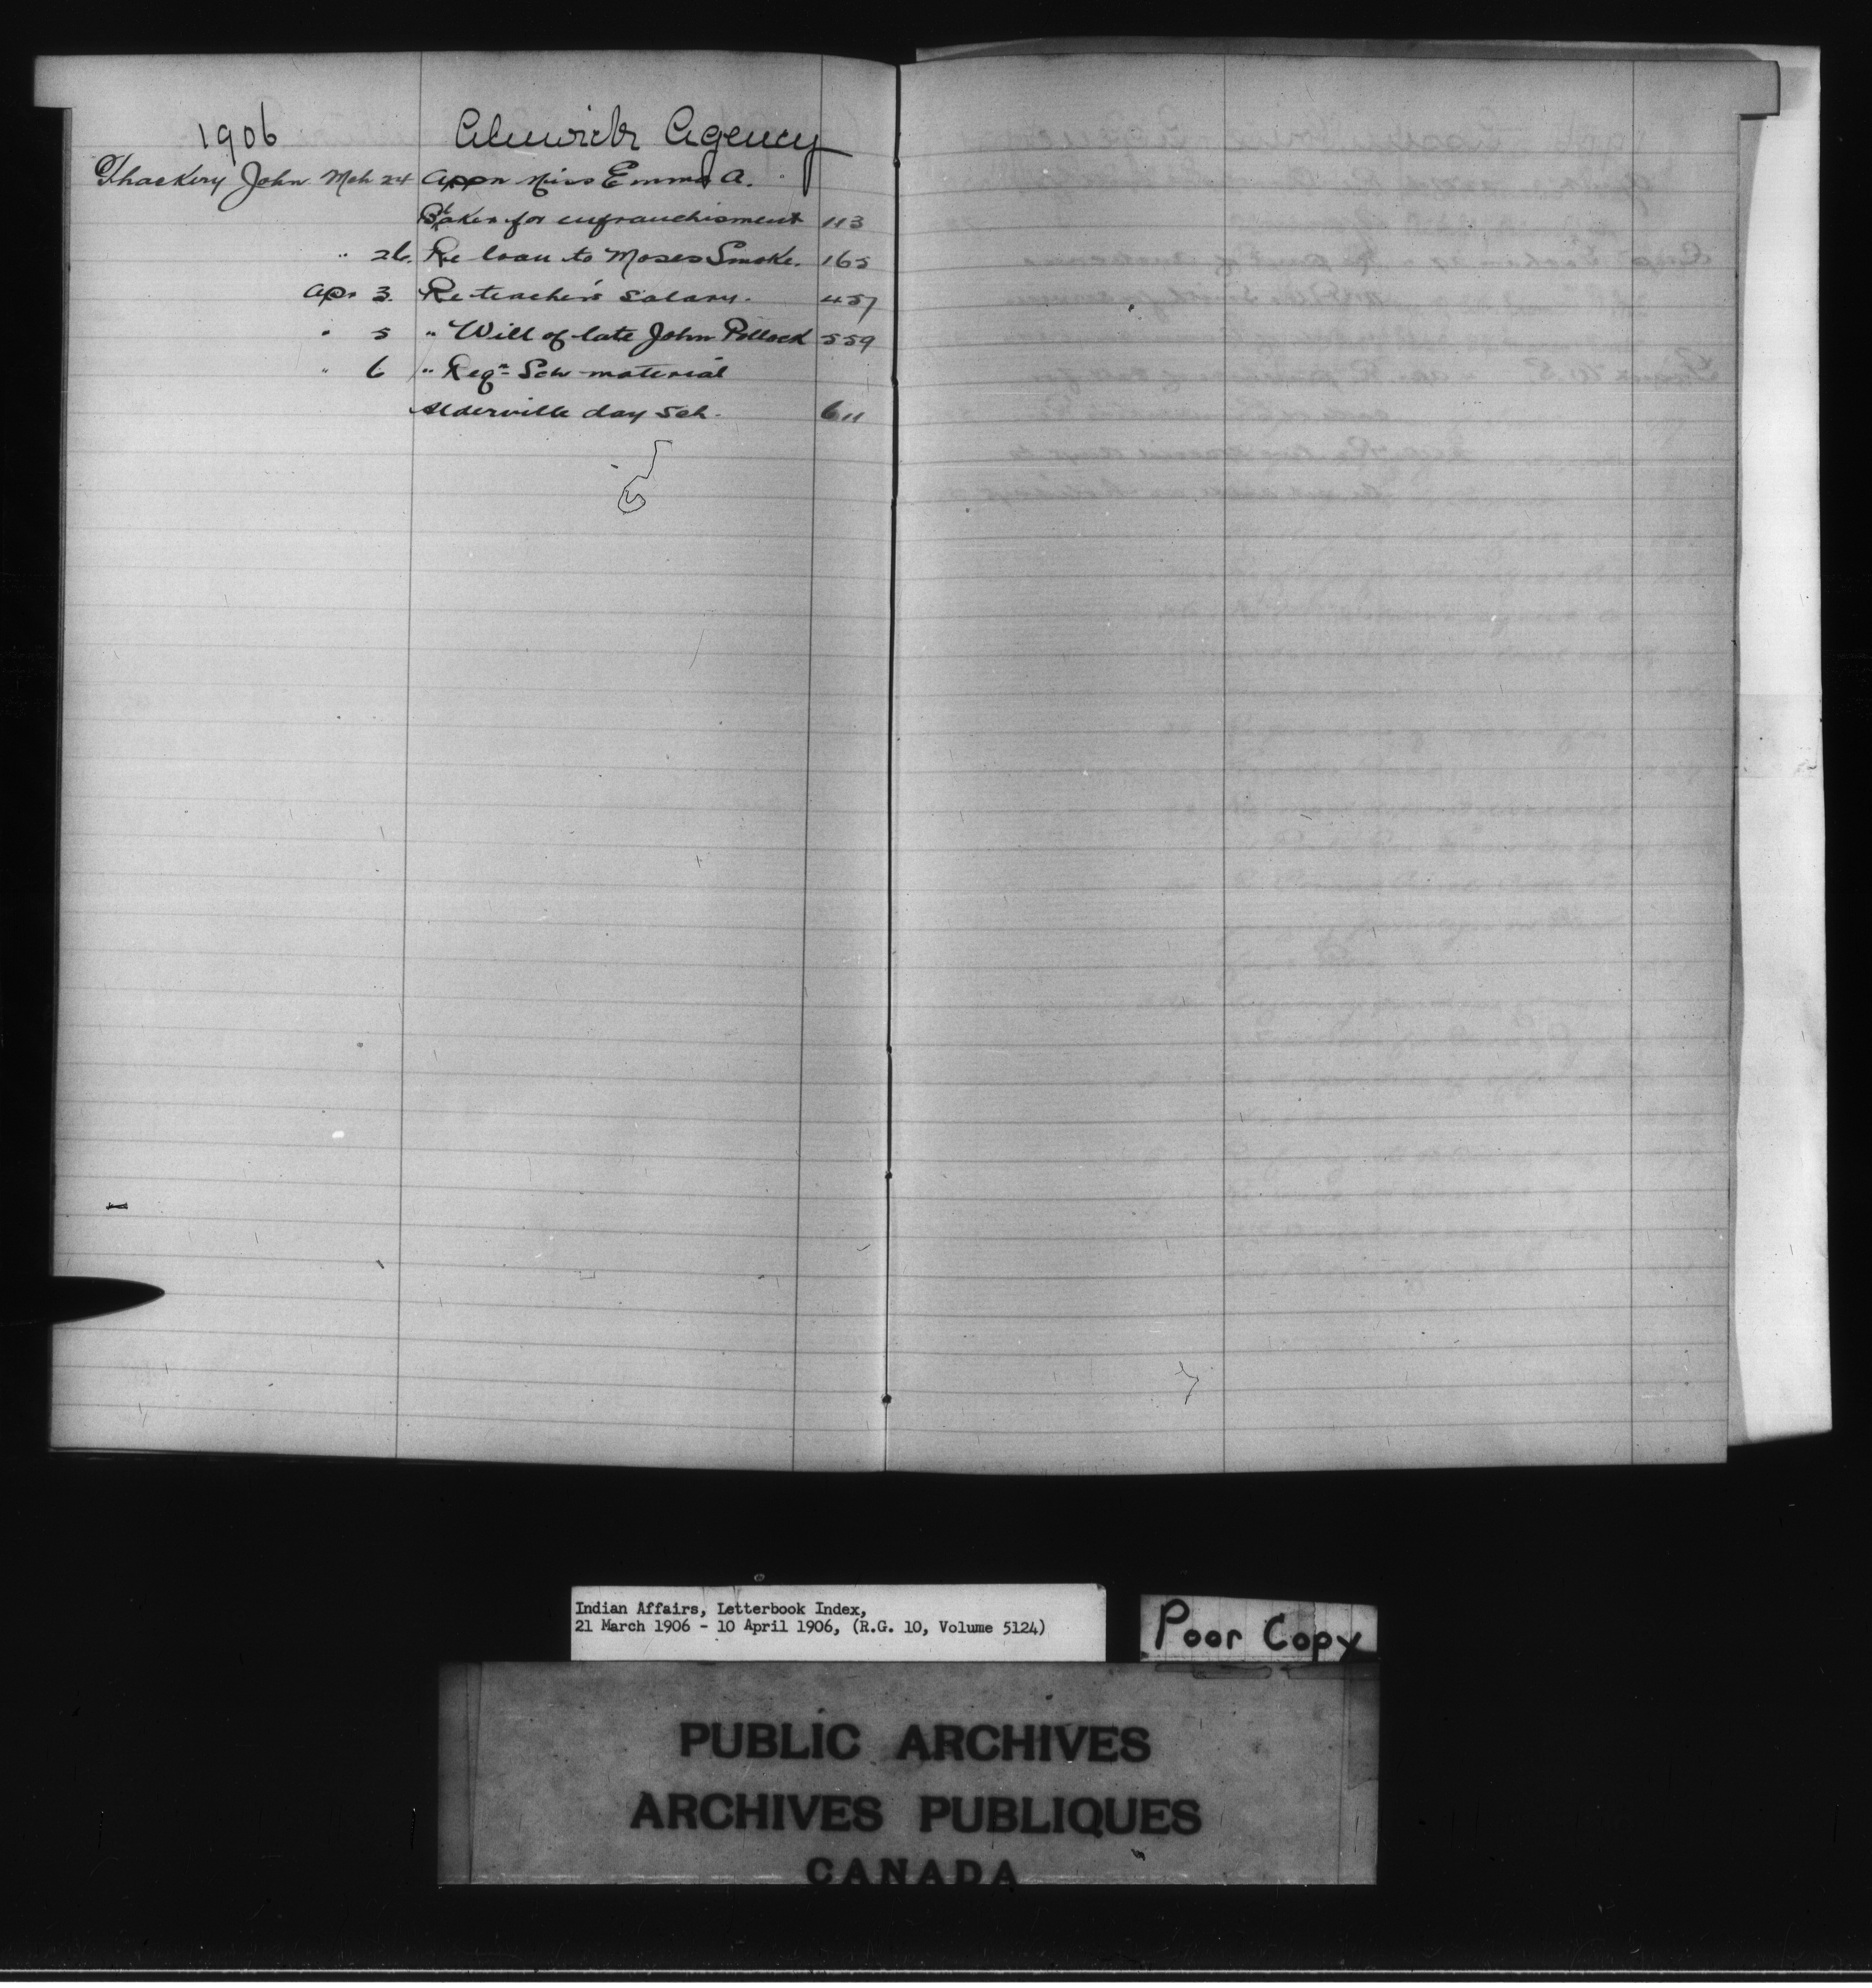 1906 Alnwick Agency
Thackery John Mch 24 Appn Miss Emma A.
Baker for enfranchisment 113
" 26. Re loan to Moses Smoke. 165
Apr 3. Re teacher's salary. 457
" 5 " Will of late John Pollock 559
" 6 " Reqn Sch material
Alderville day sch. 611
Indian Affairs, Letterbook Index,
21 March 1906 - 10 April 1906, (R.G. 10, Volume 5124)
Poor Copy
PUBLIC ARCHIVES
ARCHIVES PUBLIQUES
CANADA